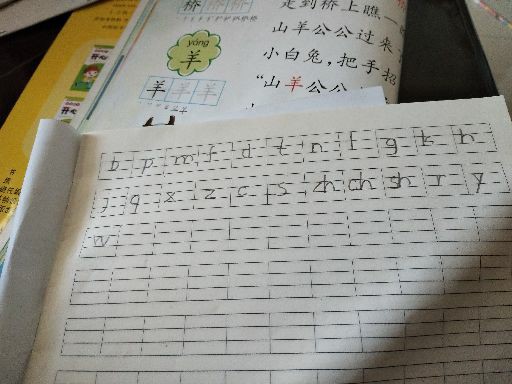 桥 桥 桥
走到桥上瞧
yáng
羊
山羊公公过来
小白兔,把手招
羊 羊 羊
“山羊公公
b p m f d t n l g k h
j q x z c s zh ch sh r y
w